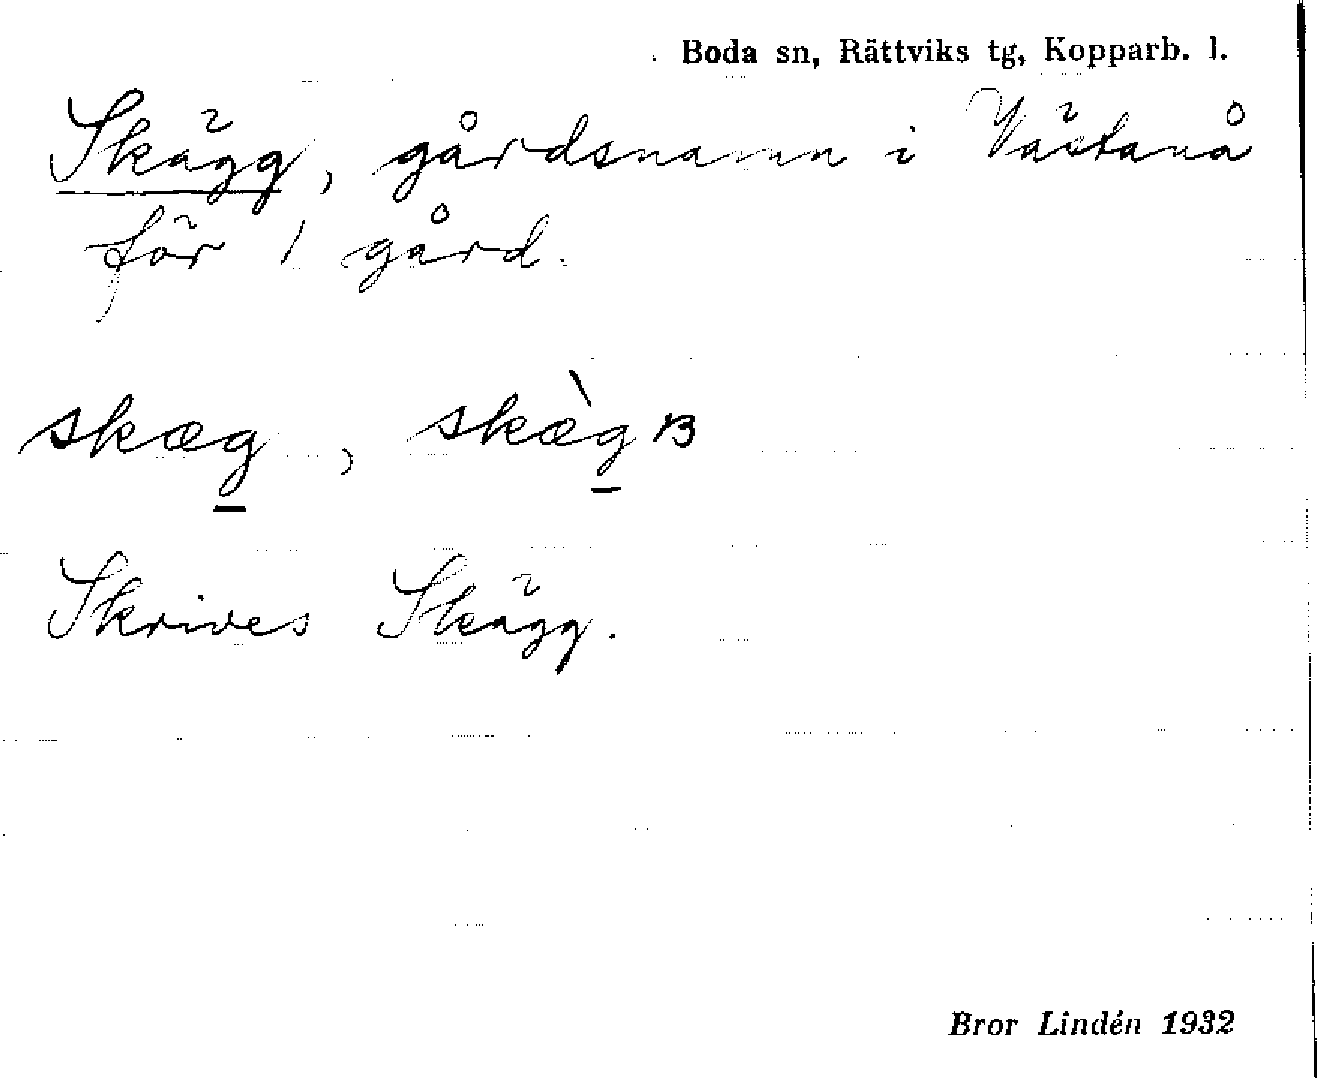 Boda sn, Rättviks tg, Kopparb. l.
Skägg, gårdsnamn i Västanå
för 1 gård.
skæg, skæ̀g
Skrives Skägg.
Bror Lindén 1932